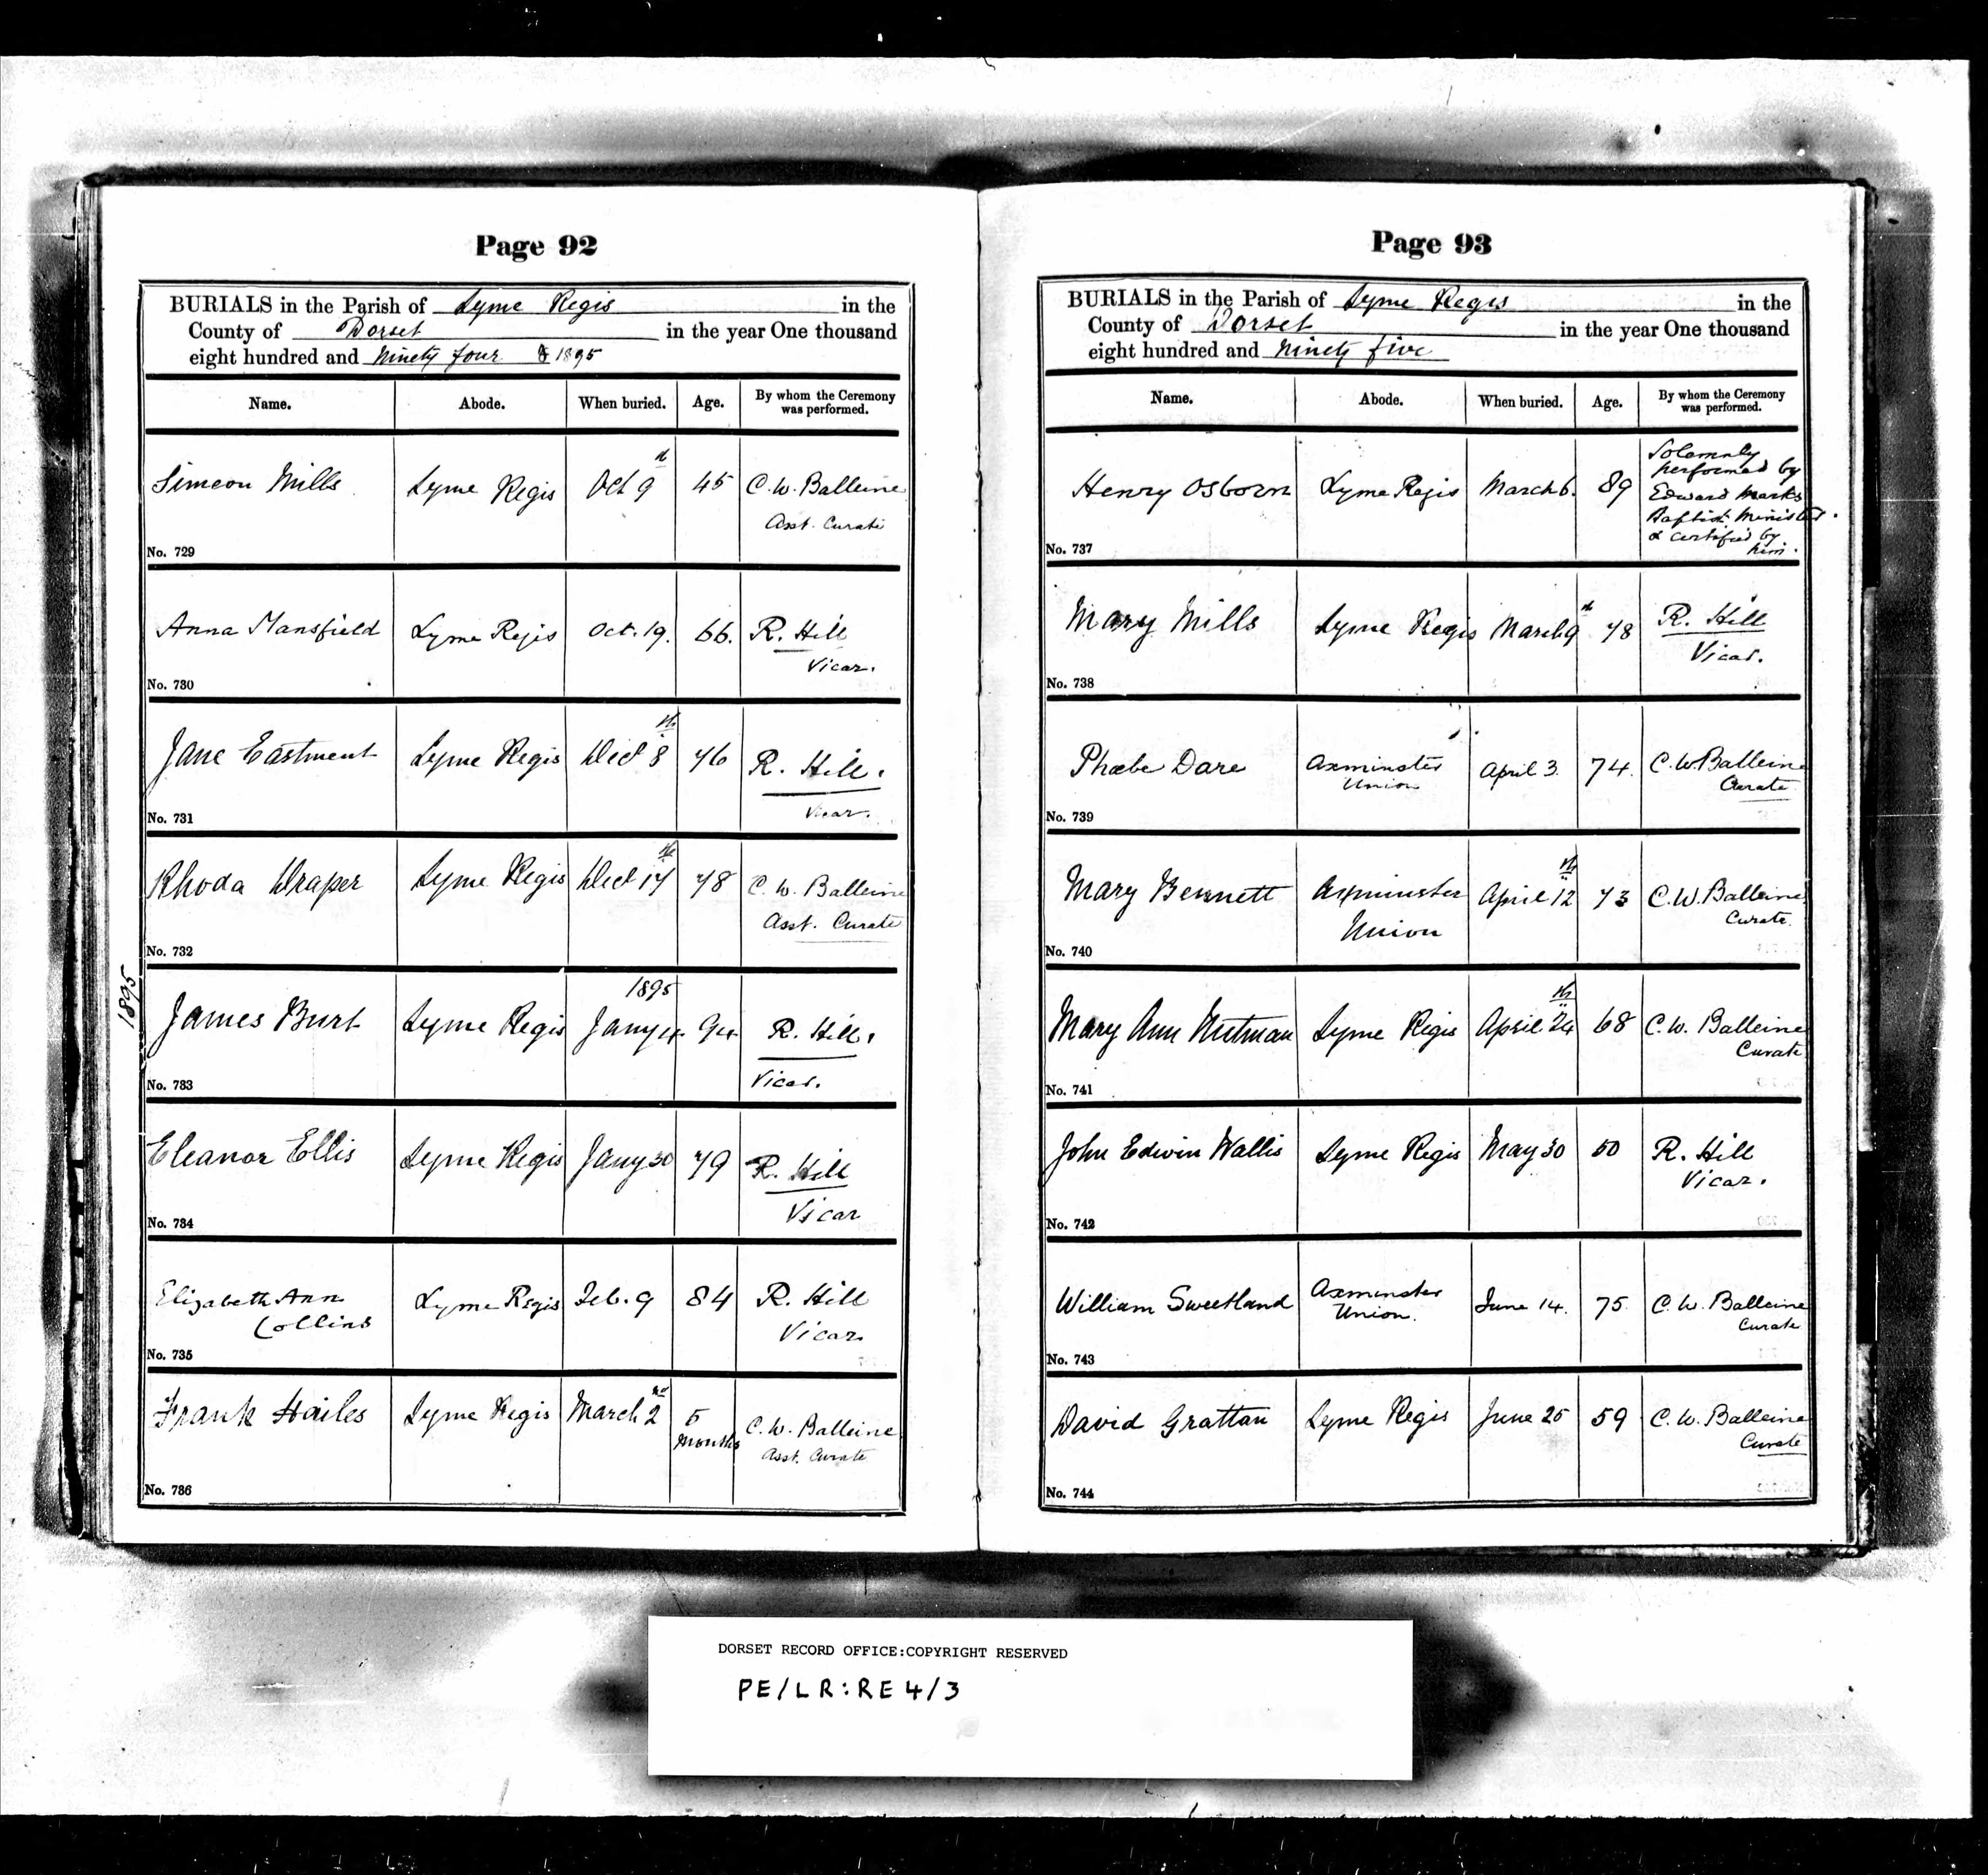 Page 92
BURIALS in the Parish of Lyme Regis in the
County of Dorset in the year One thousand
eight hundred and Ninety four & 1895
Name. Abode. When buried. Age. By whom the Ceremony was performed.
Simeon Mills Lyme Regis Oct 9th 45 C. W. Balleine
Asst. Curate
No. 729
Anna Mansfield Lyme Regis Oct. 19. 66. R. Hill
Vicar.
No. 730
Jane Eastment Lyme Regis Dec 8th 76 R. Hill.
Vicar.
No. 731
Rhoda Draper Lyme Regis Dec 17th 78 C. W. Balleine
Asst. Curate
No. 732
1895
1895
James Burt Lyme Regis Jany 4. 94. R. Hill.
Vicar.
No. 733
Eleanor Ellis Lyme Regis Jany 30 79 R. Hill
Vicar
No. 734
Elizabeth Ann Lyme Regis Feb. 9 84 R. Hill
Collins Vicar
No. 735
Frank Hailes Lyme Regis March 2nd 5 C. W. Balleine
months Asst. Curate
No. 736
Page 93
BURIALS in the Parish of Lyme Regis in the
County of Dorset in the year One thousand
eight hundred and Ninety five
Name. Abode. When buried. Age. By whom the Ceremony was performed.
Solemnly
performed by
Henry Osborn Lyme Regis March 6. 89 Edward Marks
Baptist Minister.
& certified by
No. 737 him.
Mary Mills Lyme Regis March 9th 78 R. Hill
Vicar.
No. 738
Phœbe Dare Axminster April 3. 74. C. W. Balleine
Union Curate
No. 739
Mary Bennett Axminster April 12th 73 C. W. Balleine
Union Curate
No. 740
Mary Ann Nutman Lyme Regis April 24th 68 C. W. Balleine
Curate
No. 741
John Edwin Wallis Lyme Regis May 30 50 R. Hill
Vicar.
No. 742
William Sweetland Axminster June 14. 75. C. W. Balleine
Union. Curate
No. 743
David Grattan Lyme Regis June 25 59 C. W. Balleine
Curate
No. 744
DORSET RECORD OFFICE:COPYRIGHT RESERVED
PE/LR:RE4/3